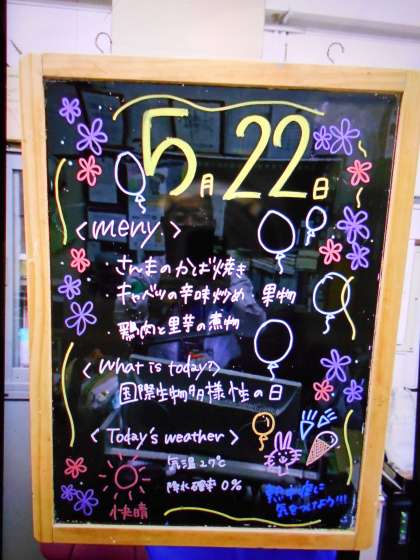 5月22日
<meny>
・さんまのかば焼き
・キャベツの辛味炒め・果物
・鶏肉と里芋の煮物
<What is today?>
国際生物多様性の日
<Today's weather>
気温27℃
降水確率0%
快晴
熱中症に
気をつけよう!!!